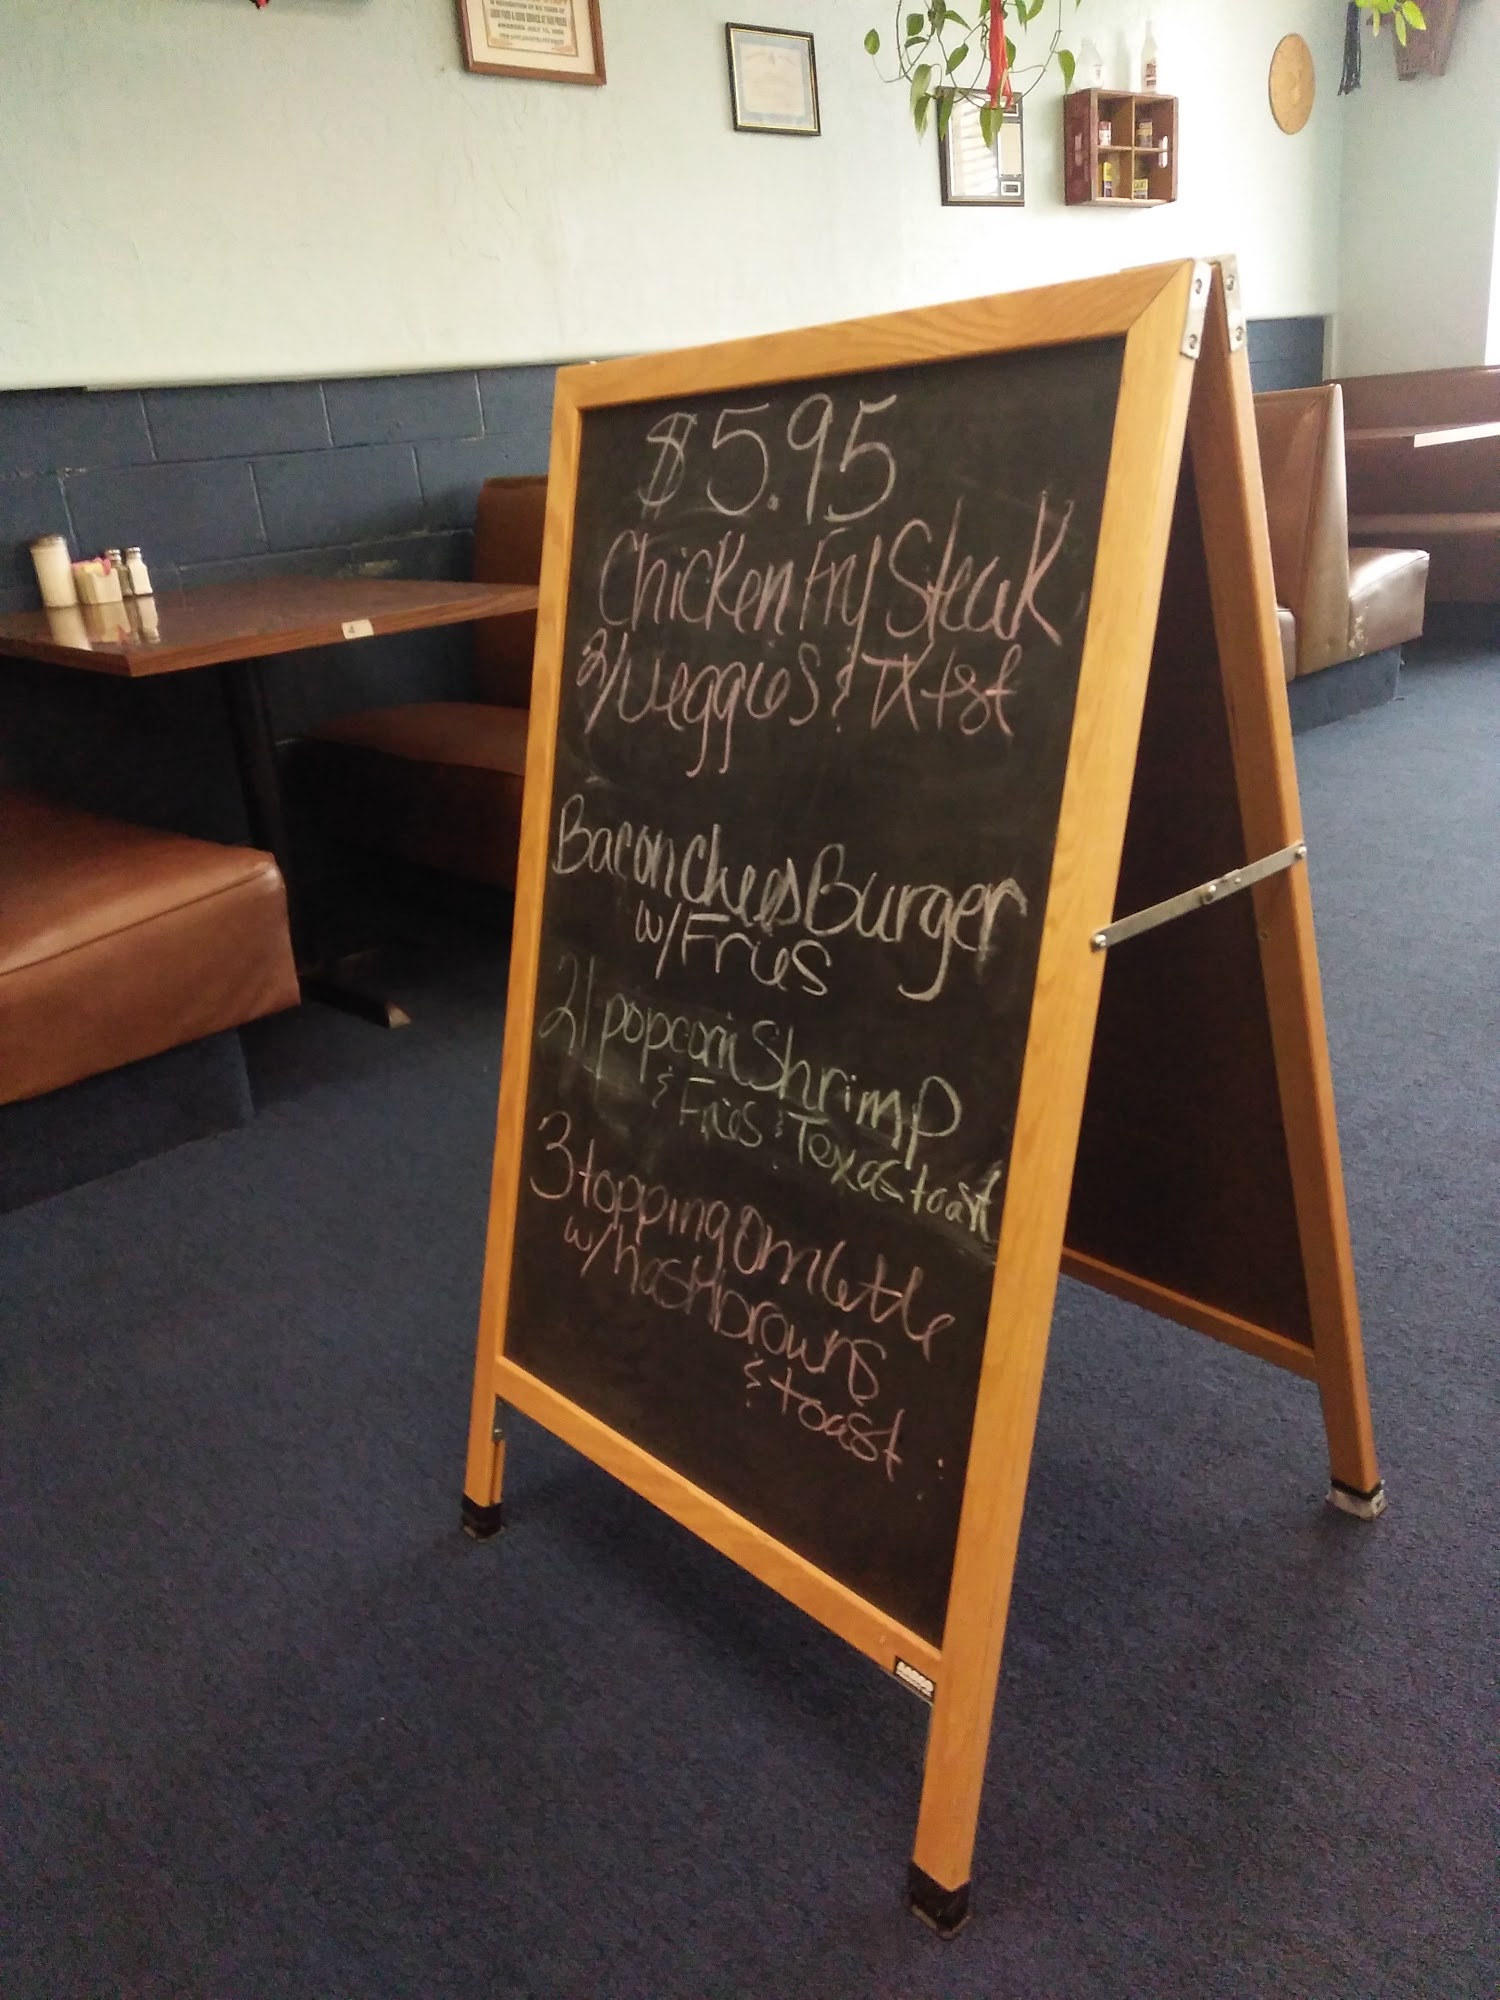 $5.95
Chicken Fry Steak
2/Veggies & TX tst
Bacon Chees Burger
w/Fries
21 popcorn Shrimp
& Fries & Texas toast
3 topping Omlette
w/hashbrowns
& toast
4